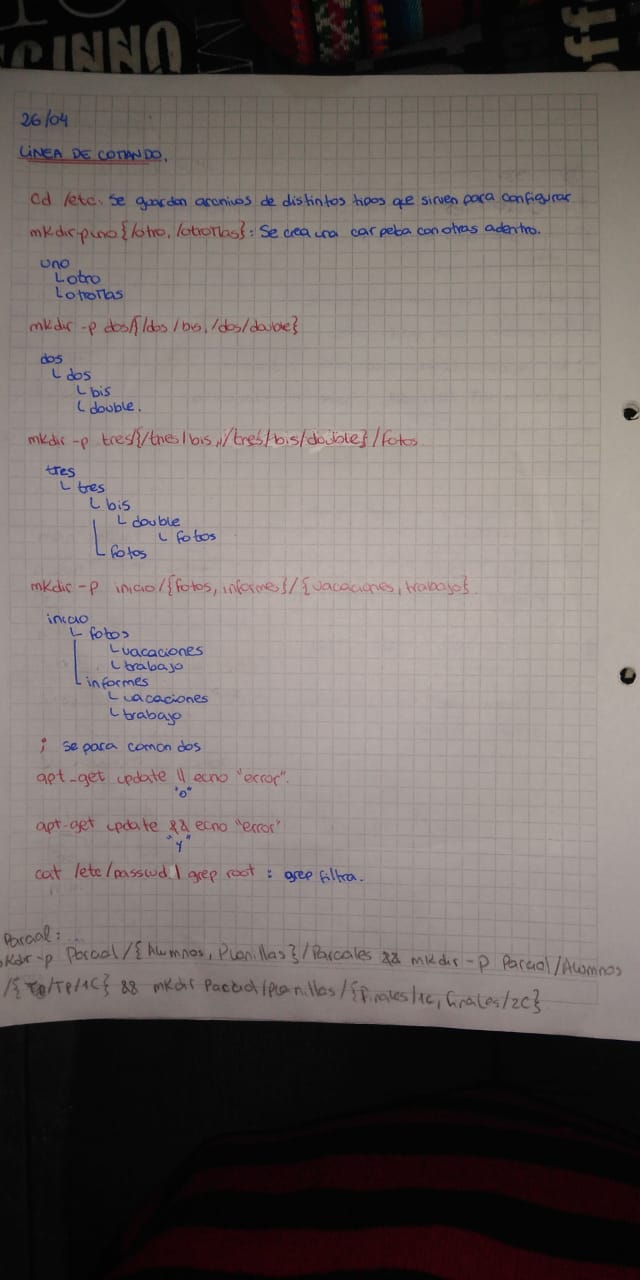 CINNU
off
26/04
LINEA DE COMANDO.
cd /etc. Se guardan archivos de distintos tipos que sirven para configurar
mkdir-p uno{/otro, /otroMas}: Se crea una carpeta con otras adentro.
uno
└ otro
└ otroMas
mkdir -p dos/{/dos/bis, /dos/double}
dos
└ dos
└ bis
└ double.
mkdir -p tres/{/tres/bis,//tres/bis/double}/fotos
tres
└ tres
└ bis
└ double
└ fotos
└ fotos
mkdir -p inicio/{fotos, informes}/{vacaciones, trabajo}
inicio
└ fotos
└ vacaciones
└ trabajo
└ informes
└ vacaciones
└ trabajo
; separa comandos
apt-get update || echo "error".
"o"
apt-get update && echo "error"
"y"
cat /etc/passwd | grep root : grep filtra.
Parcial:
mkdir -p Parcial/{Alumnos, Planillas}/Parciales && mkdir -p Parcial/Alumnos
/TP/1C} && mkdir Parcial/planillas/{Finales/1C, finales/2C}